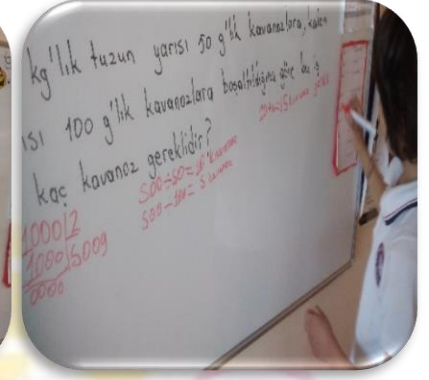 kg'lık tuzun yarısı 50 g'lık kavanozlara, kalan
ısı 100 g'lık kavanozlara boşaltıldığına göre bu iş
kaç kavanoz gereklidir?
500÷50=10 kavanoz
500÷100=5 kavanoz
1000 2
1000 500g
0000